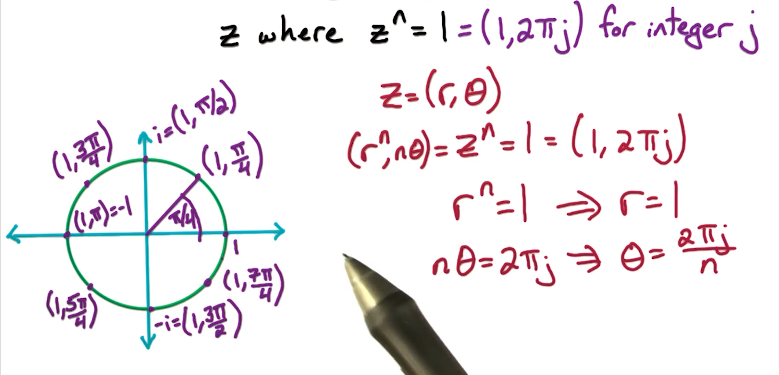 z where zⁿ = 1 = (1, 2πj) for integer j
z = (r, θ)
(rⁿ, nθ) = zⁿ = 1 = (1, 2πj)
rⁿ = 1 ⇒ r = 1
nθ = 2πj ⇒ θ = 2πj/n
i = (1, π/2)
(1, 3π/4)
(1, π/4)
(1, π) = -1
π/4
1
(1, 5π/4)
(1, 7π/4)
-i = (1, 3π/2)